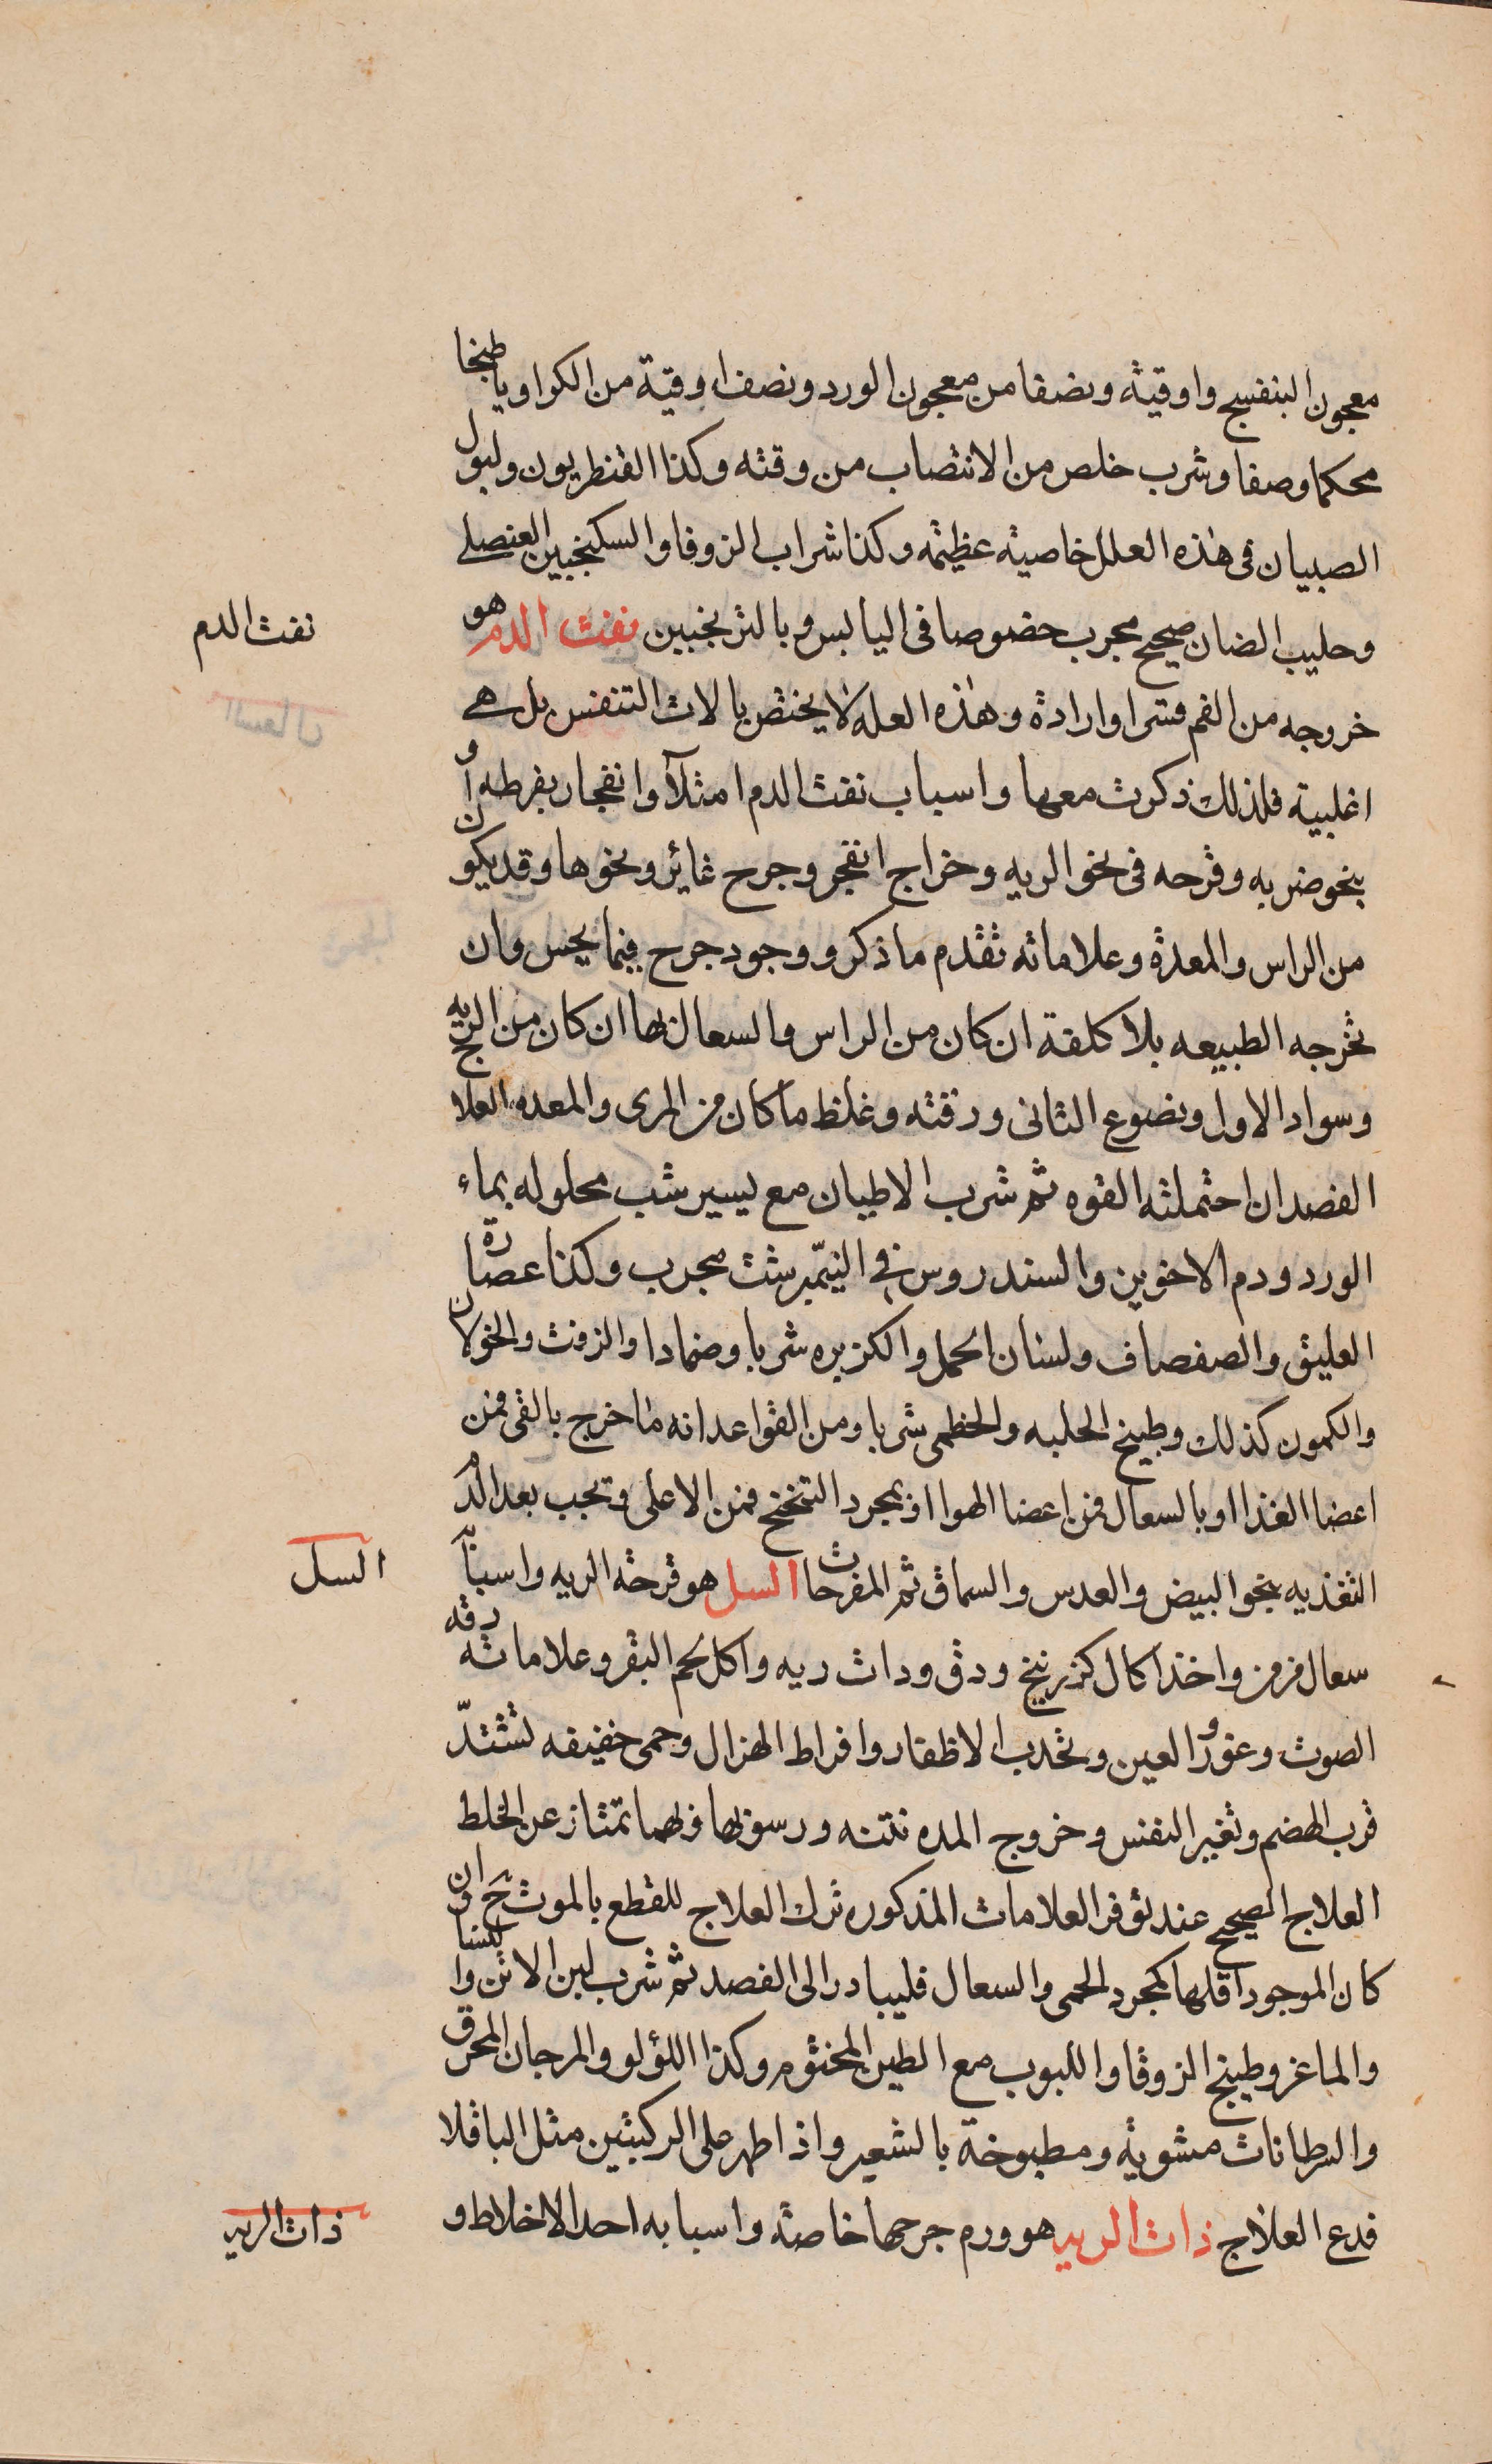 معجون البنفسج واوقية ونصفا من معجون الورد ونصف اوقية من الكراويا طبخا
محكما وصفا وشرب خلص من الانتصاب من وقته وكذا القنطريون ولبول
الصبيان فى هذه العلل خاصية عظيمه وكذا شراب الزوفا والسكنجبين العنصلے
وحليب الضان صحيح مجرب خصوصا فى اليابس وبالترنجبين نفث الدم هو
خروجه من الفم قسرا وارادة وهذه العله لا يختص بالات التنفس بل هے
اغلبية فلذلك ذكرت معها واسباب نفث الدم امتلآ وانفجار بفرطه او
بنحو ضربه وقرحه فى نحو الريه وخراج انفجر وجرح غائر ونحوها وقد يكون
من الراس والمعدة وعلاماته تقدم ما ذكر ووجود جرح فيما يحس وان
تخرجه الطبيعه بلا كلفة ان كان من الراس والسعال بها ان كان من الريه
وسواد الاول ونصوع الثانى ورقته وغلظ ما كان من المرى والمعده العلاج
الفصد ان احتملته القوه ثم شرب الاطيان مع يسير شب محلوله بماء
الورد ودم الاخوين والسندروس فى النيمبرشت مجرب وكذا عصارة
العليق والصفصاف ولسان الحمل والكزبره شربا وضمادا والزفت والخولان
والكمون كذلك وطبيخ الحلبه والخطمى شربا ومن القواعد انه ما خرج بالقى فمن
اعضا الغذا او بالسعال فمن اعضا الهوا او بمجرد التنخنخ فمن الاعلى وتجب بعد الدم
التغذيه بنحو البيض والعدس والسماق ثم المفرحات السل هو قرحة الريه واسبابه
سعال مزمن واخذ اكال كزرنيخ ودق وذات ريه واكل لحم البقر وعلاماته رقه
الصوت وغور العين وتحدب الاظفار وافراط الهزال وحمى خفيفه تشتدّ
قرب الهضم وتغير النفس وخروج المده نتنه ورسوبها وبهما تمتاز عن الخلط
العلاج الصحيح عند توفر العلامات المذكوره ترك العلاج للقطع بالموت ح وان
كان الموجود اقلها كمجرد الحمى والسعال فليبادر الى الفصد ثم شرب لبن الاتن والنسا
والماعز وطبيخ الزوفا واللبوب مع الطين المختوم وكذا اللؤلو والمرجان المحرق
والسرطانات مشوية ومطبوخة بالشعير واذا ظهر على الركبتين مثل الباقلا
فدع العلاج ذات الريه هو ورم جرمها خاصة واسبابه احد الاخلاط و
نفث الدم
السل
ذات الريه